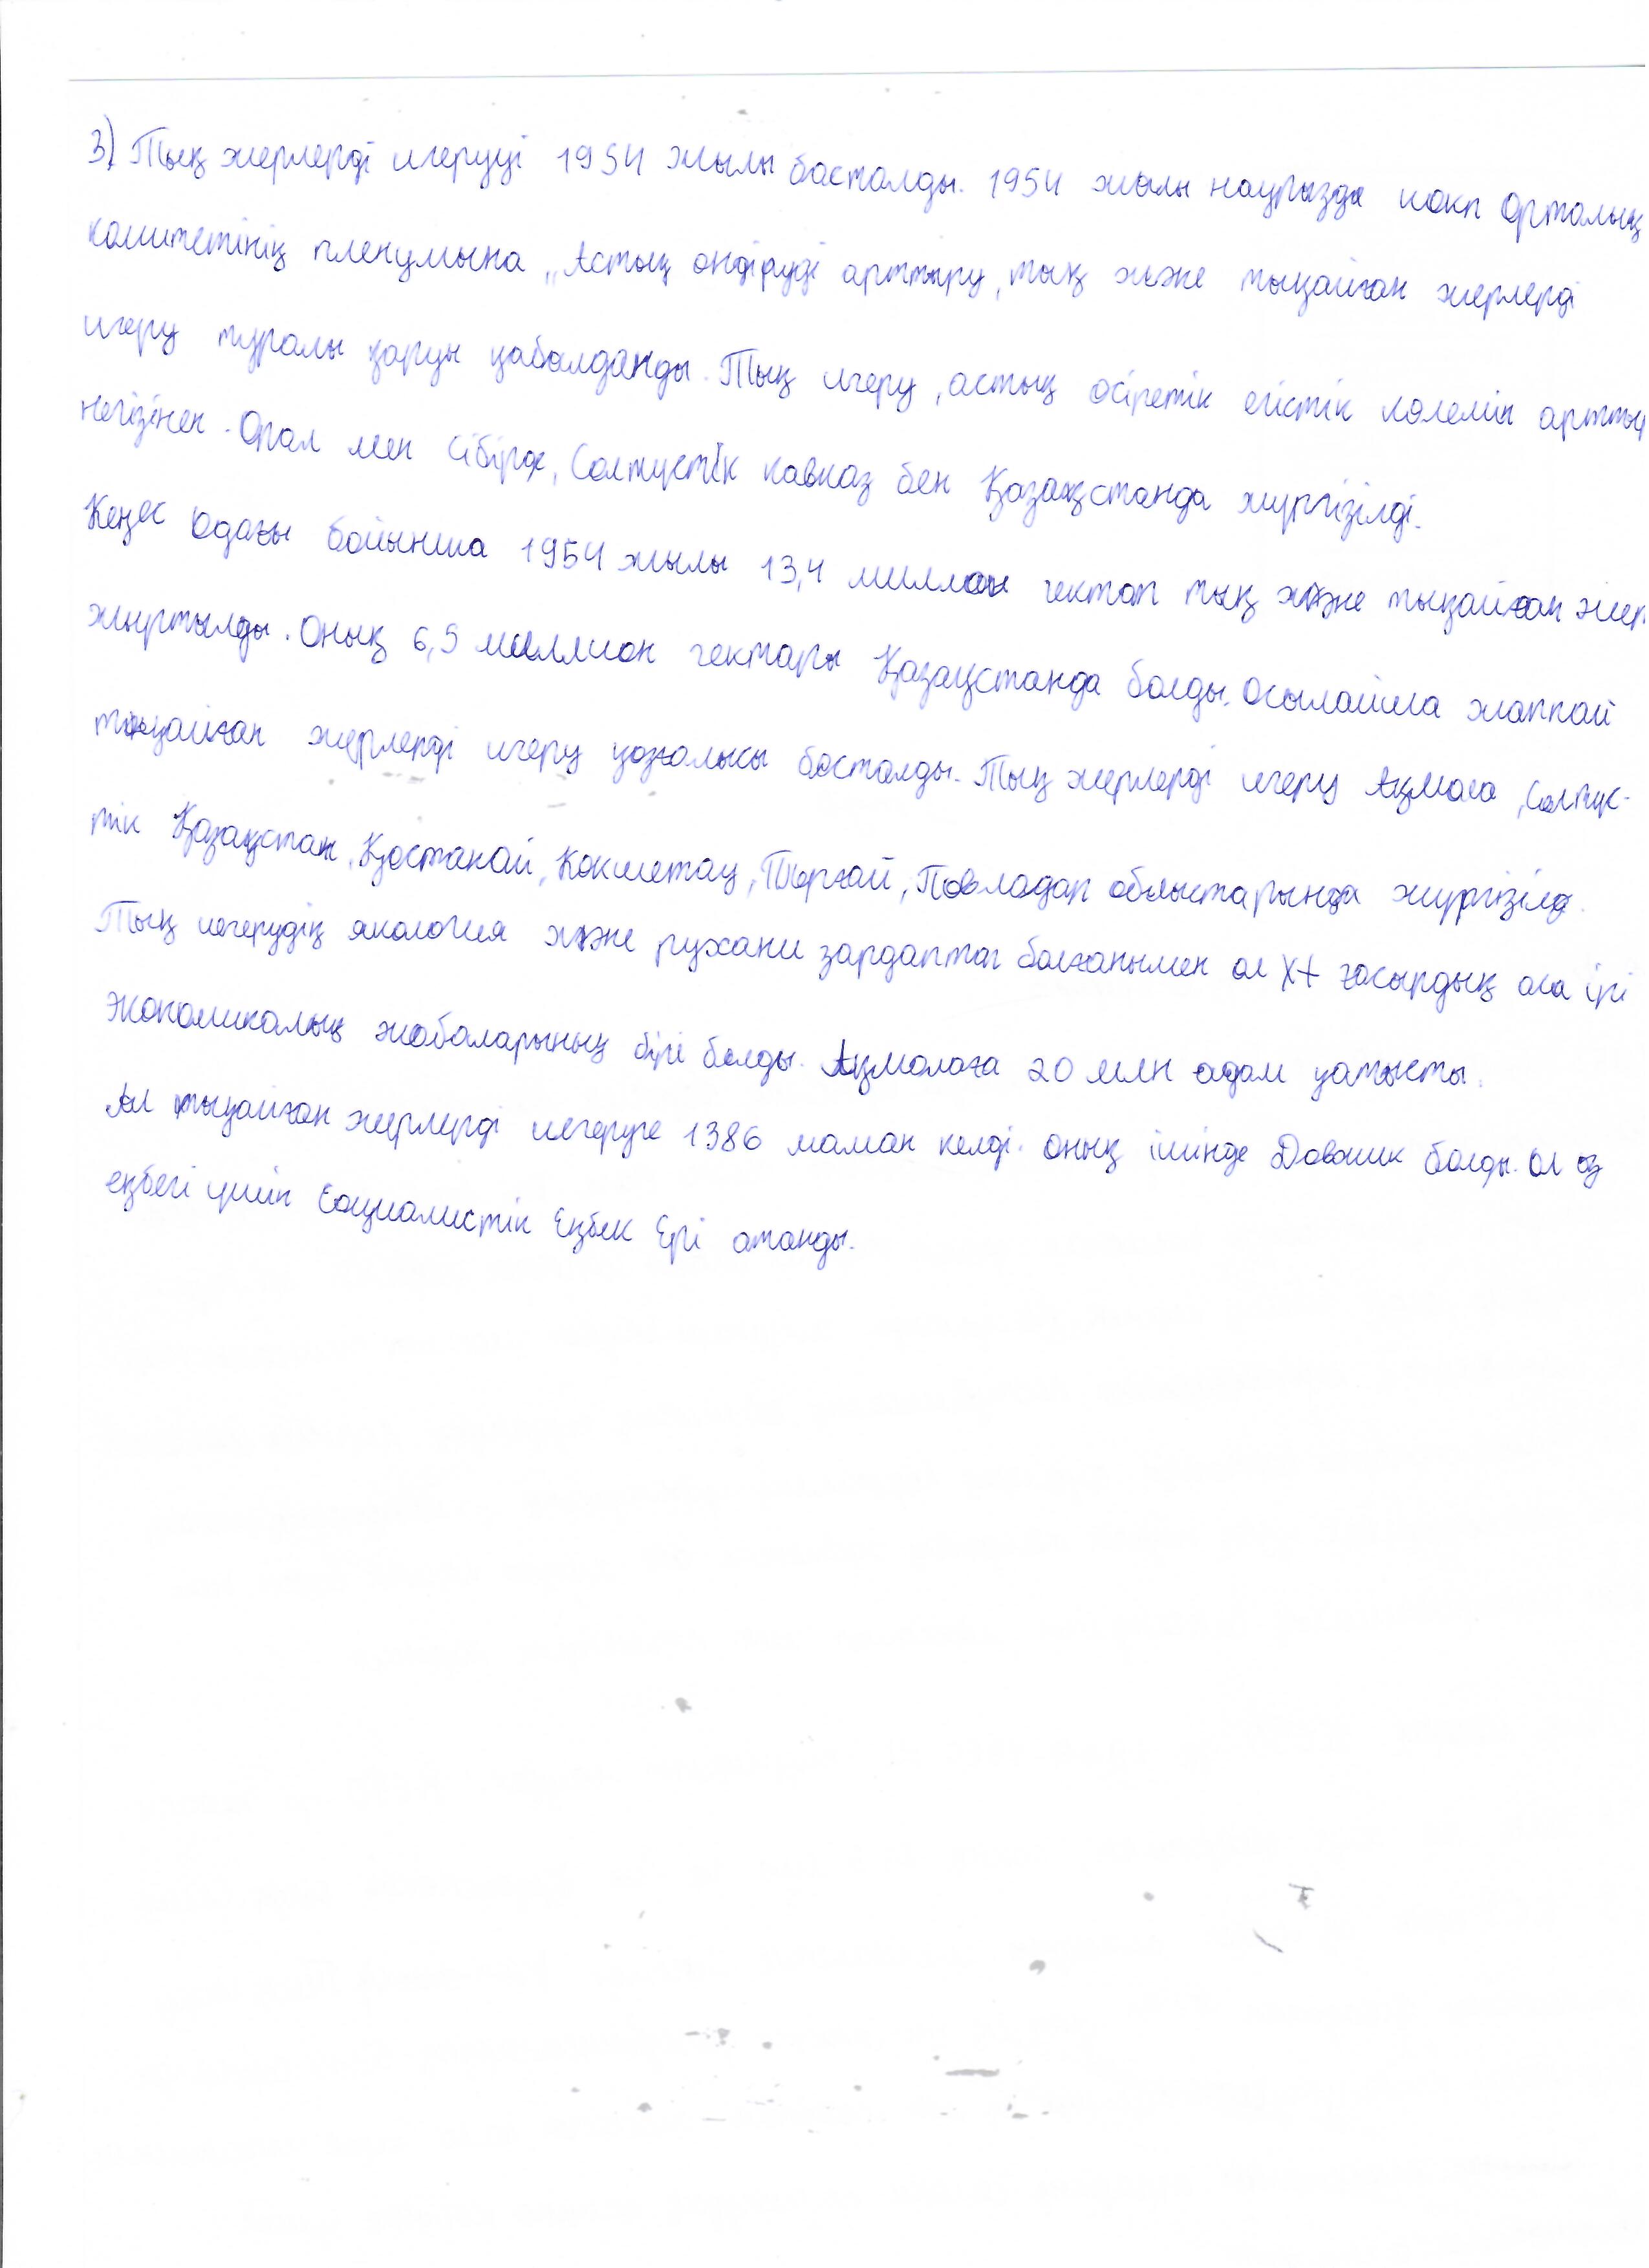 3) Тың жерлерді игеруці 1954 жылы басталды. 1954 жылы наурызда КОКП Орталық
комитетінің пленумына „Астық өндіруді арттыру, тың және тыңайған жерлерді
игеру туралы қарун қабалданды. Тың игеру, астық өсіретік егістік көлемін арттыр
негізінен. Орал мен Сібірде, Солтүстік кавказ бен Қазақстанда жүргізілді.
Кеңес Одағы бойынша 1954 жылы 13,4 миллион гектар тың және тыңайған жер
жыртылды. Оның 6,5 миллион гектары Қазақстанда болды. Осылайша жаппай
тыңайған жерлерді игеру қозғалысы басталды. Тың жерлерді игеру Ақмола, Солтүс-
тік Қазақстан, Қостанай, Көкшетау, Торғай, Павлодар облыстарында жүргізілд.
Тың игерудің экология және рухани зардаптаг болғанымен ол ХХ ғасырдың аса ірі
экономикалық жобаларының бірі болды. Ақмолаға 20 млн адам қатысты.
Ал тыңайған жерлерді игеруге 1386 маман келді. оның ішінде Довжик болды. Ол өз
еңбегі үшін Социалистік Еңбек Ері атанды.